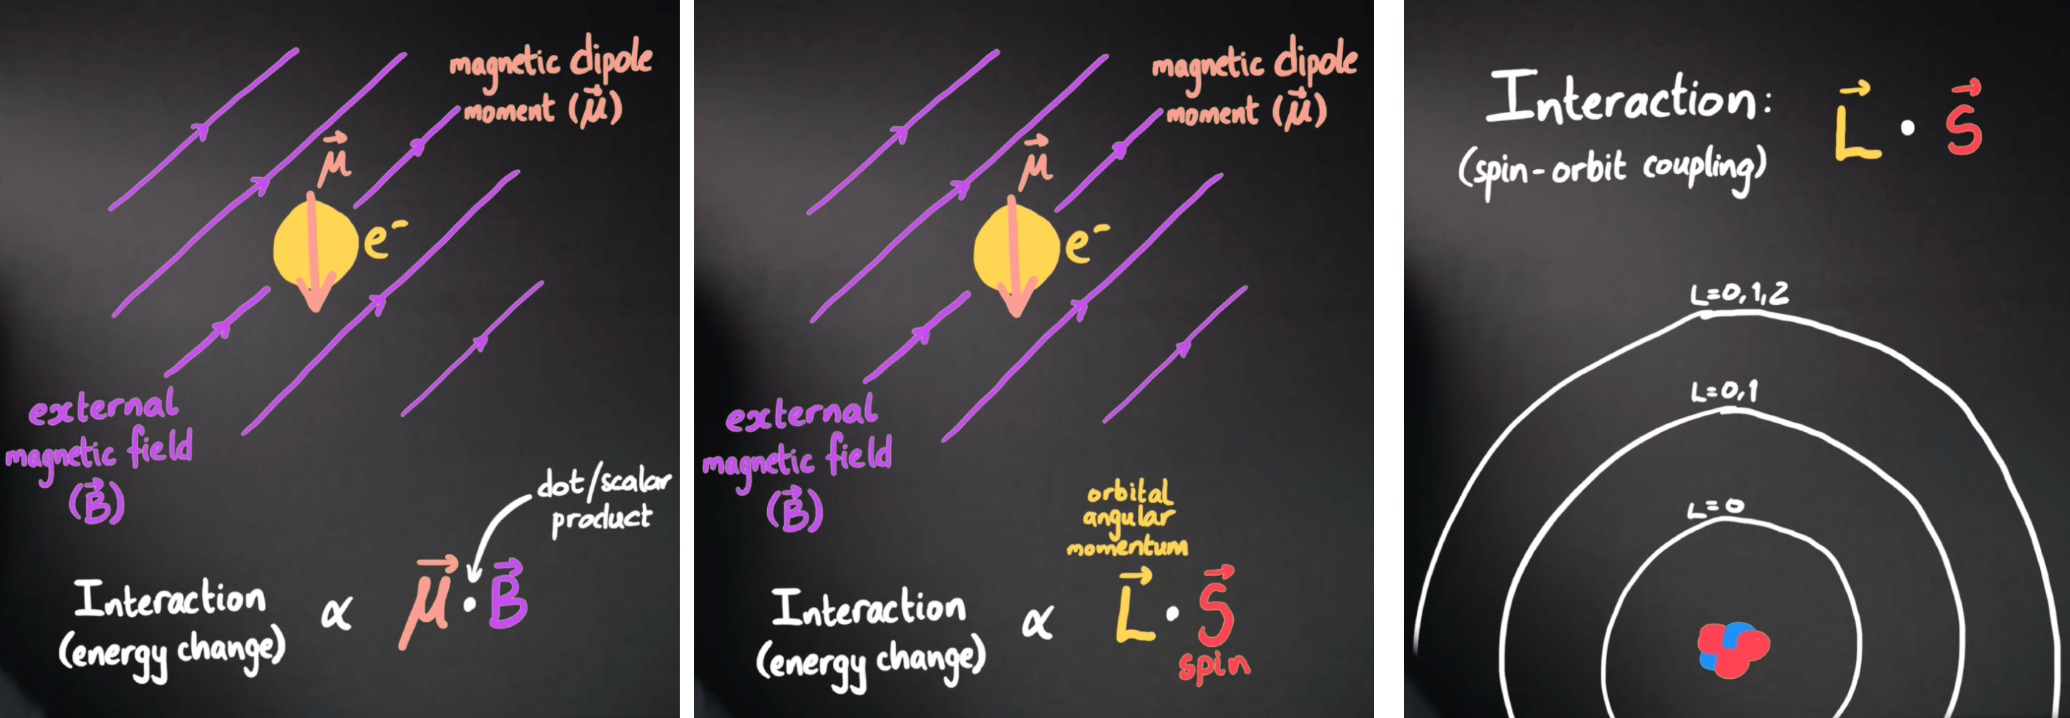 magnetic dipole
moment (μ⃗)
μ⃗
e⁻
external
magnetic field
(B⃗)
dot/scalar
product
Interaction ∝ μ⃗ · B⃗
(energy change)
magnetic dipole
moment (μ⃗)
μ⃗
e⁻
external
magnetic field
(B⃗)
orbital
angular
momentum
Interaction ∝ L⃗ · S⃗
(energy change)
spin
Interaction: L⃗ · S⃗
(spin-orbit coupling)
L=0,1,2
L=0,1
L=0